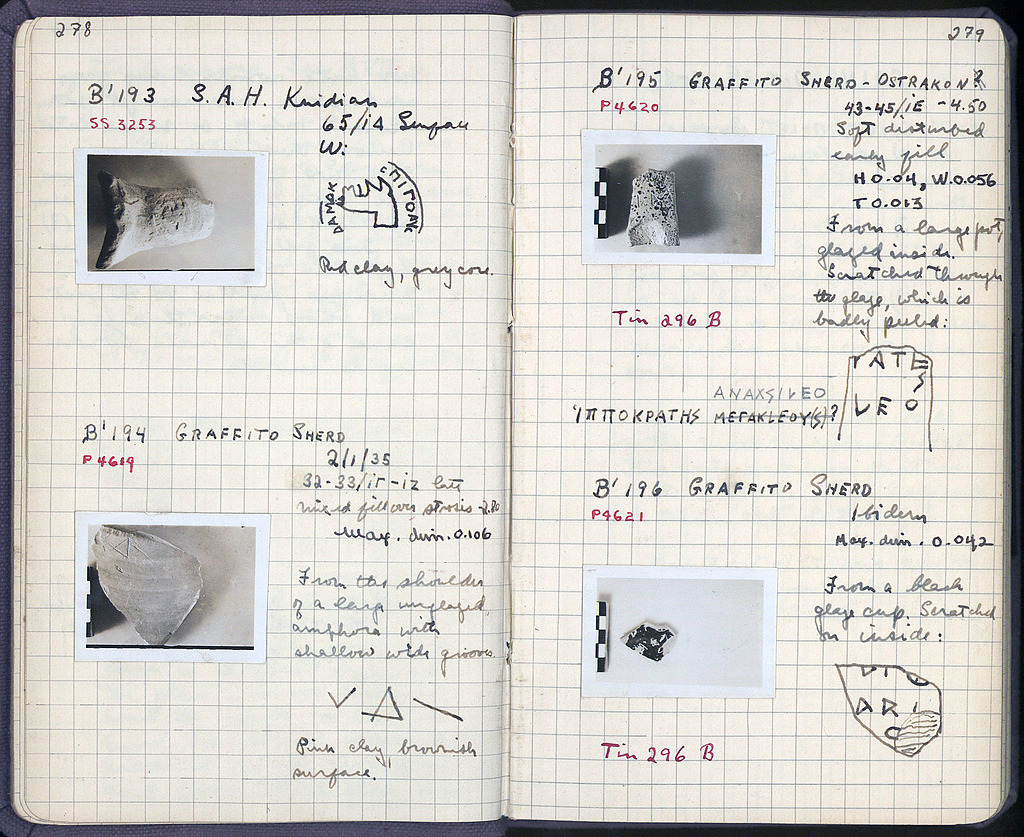 278
B'193 S.A.H. Knidian
SS 3253
65/ΙΔ Surface
W:
ΕΠΙΓΟΛΚ
ΔΑΜΟΚ
Red clay, grey core.
B'194 GRAFFITO SHERD
P 4619
2/1/35
32-33/ΙΓ-ΙΖ late
mixed fill over strosis -2.80
Max. dim. 0.106
From the shoulder
of a large unglazed
amphora with
shallow wide grooves.
Pink clay, brownish
surface.
279
B'195 GRAFFITO SHERD - OSTRAKON?
P 4620
43-45/ΙΕ -4.50
Soft disturbed
early fill
H 0.04, W. 0.056
T 0.013
From a large pot,
glazed inside.
Scratched through
the glaze, which is
badly peeled:
Tin 296 B
ΡΑΤΕ
ΛΕΟ
ΑΝΑΧΣΙΛΕΟ
ἹΠΠΟΚΡΑΤΗΣ ΜΕΓΑΚΛΕΟΥ(Σ)?
B'196 GRAFFITO SHERD
P4621
Ibidem
Max. dim. 0.042
From a black
glaze cup. Scratched
on inside:
ΑΡΙ
Tin 296 B